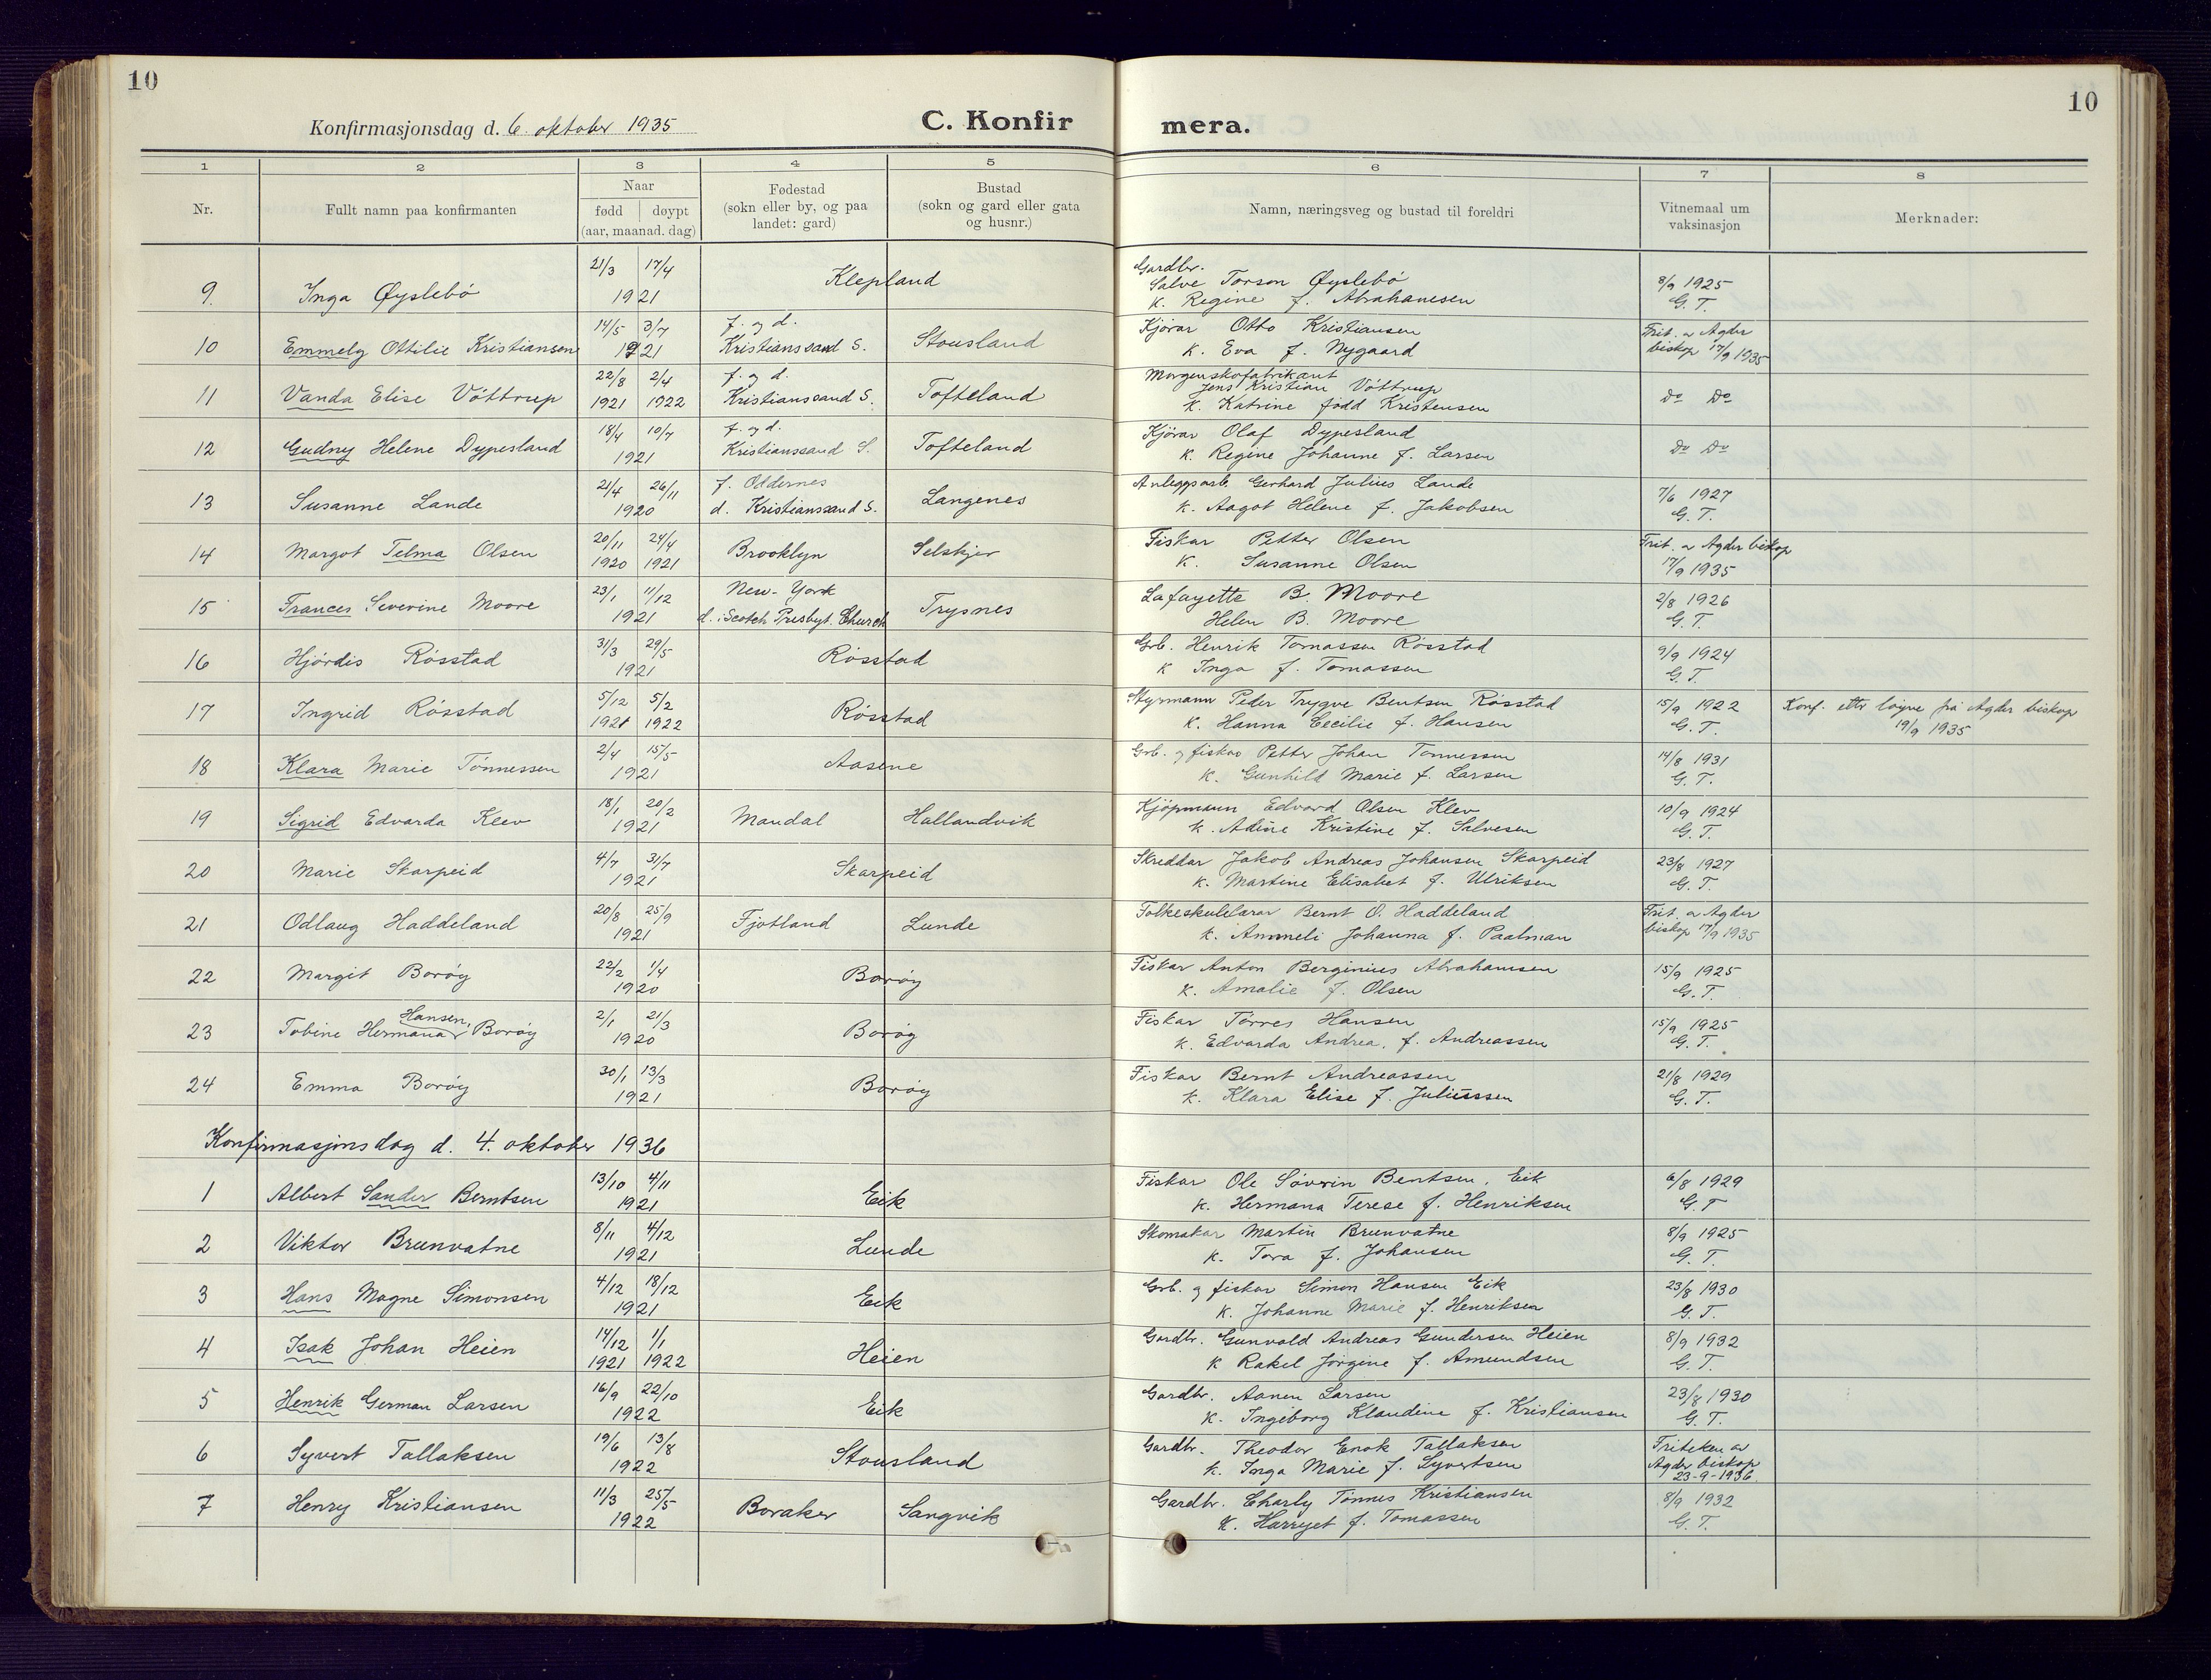 10
10
Konfirmasjonsdag d. 6. oktober 1935
C. Konfir mera.
1 2 3 4 5 6 7 8
Nr.
Fullt namn paa konfirmanten
Naar
fødd | døypt
(aar, maanad. dag)
Fødestad
(sokn eller by, og paa
landet: gard)
Bustad
(sokn og gard eller gata
og husnr.)
Namn, næringsveg og bustad til foreldri
Vitnemaal um
vaksinasjon
Merknader:
21/3 17/4 Gardbr.
9. Inga Øyslebö 1921 Klepland Salve Torson Øyslebö 8/9 1925
K. Regine f. Abrahamsen G. T.
14/5 3/7 f. og d. Kjörar Otto Kristiansen Frit. av Agder
10 Emmely Ottilie Kristiansen 1921 Kristianssand S. Stousland K. Eva f. Nygaard biskop 17/9 1935
22/8 2/4 f. og d. Morgenskofabrikant
11 Vanda Elise Vöttrup 1921 1922 Kristianssand S. Tofteland Jens Kristian Vöttrup Do Do
K. Katrine född Kristensen
18/4 10/7 f. og d. Kjörar Olaf Dypesland
12 Gudny Helene Dypesland 1921 Kristianssand S. Tofteland K. Regine Johanne f. Larsen Do Do
21/4 26/11 f. Oddernes Anleggsarb. Gerhard Julius Lande 7/6 1927
13 Susanne Lande 1920 d. Kristianssand S. Langenes K. Aagot Helene f. Jakobsen G. T.
20/11 24/4 Fiskar Petter Olsen Frit. av Agder biskop
14 Margot Telma Olsen 1920 1921 Brooklyn Selskjer K. Susanne Olsen 17/9 1935
23/1 11/12 New-York Lafayette B. Moore 2/8 1926
15 Frances Severine Moore 1921 d. i Scotch Presbyt. Church Trysnes Helen B. Moore G. T.
31/3 29/5 Grb. Henrik Tomassen Rösstad 9/9 1924
16 Hjördis Rösstad 1921 Rösstad K Inga f. Tomassen G. T.
5/12 5/2 Styrmann Peder Trygve Bentsen Rösstad 15/9 1922 Konf. etter löyve frå Agder biskop
17 Ingrid Rösstad 1921 1922 Rösstad K. Hanna Cecilie f. Hansen G. T. 19/9 1935
2/4 15/5 Grb. og fiskar Petter Johan Tönnessen 14/8 1931
18 Klara Marie Tönnessen 1921 Aasene K. Gunhild Marie f. Larsen G. T.
18/1 20/2 Kjöpmann Edvard Olsen Klev 10/9 1924
19 Sigrid Edvarda Klev 1921 Mandal Hallandvik K. Adine Kristine f. Salvesen G. T.
4/7 31/7 Skreddar Jakob Andreas Johansen Skarpeid 23/8 1927
20 Marie Skarpeid 1921 Skarpeid K. Martine Elisabet f. Ulriksen G. T.
20/8 25/9 Folkeskulelærar Bernt O. Haddeland Frit. av Agder
21 Odlaug Haddeland 1921 Fjotland Lunde K. Ammeli Johanna f. Paalman biskop 17/9 1935
22/2 1/4 Fiskar Anton Berginius Abrahamsen 15/9 1925
22 Margit Boröy 1920 Boröy K. Amalie f. Olsen G. T.
2/1 21/3 Fiskar Törres Hansen 15/9 1925
23 Tobine Hermana Hansen, Boröy 1920 Boröy K. Edvarda Andrea, f. Andreassen G. T.
30/1 13/3 Fiskar Bernt Andreassen 21/8 1929
24 Emma Boröy 1921 Boröy K. Klara Elise f. Juliussen G. T.
Konfirmasjonsdag d. 4. oktober 1936
13/10 4/11 Fiskar Ole Sövrin Bentsen, Eik 6/8 1929
1 Albert Sander Berntsen 1921 Eik K. Hermana Terese f. Henriksen G. T
8/11 4/12 Skomakar Martin Brunvatne 8/9 1925
2 Viktor Brunvatne 1921 Lunde K. Tora f. Johansen G. T.
4/12 18/12 Grb. og fiskar Simon Hansen Eik 23/8 1930
3 Hans Magne Simonsen 1921 Eik K. Johanne Marie f. Henriksen G. T.
14/12 1/1 Gardbr. Gunvald Andreas Gundersen Heien 8/9 1932
4 Isak Johan Heien 1921 1922 Heien K Rakel Jörgine f. Amundsen G. T.
16/9 22/10 Gardbr. Aanen Larsen 23/8 1930
5 Henrik German Larsen 1922 Eik K. Ingeborg Klaudine f. Kristiansen G. T.
19/6 13/8 Gardbr. Theodor Enok Tallaksen Friteken av
6 Syvert Tallaksen 1922 Stousland K. Inga Marie f. Syvertsen Agder biskop
23-9-1936
11/3 25/5 Gardbr. Charly Tönnes Kristiansen 8/9 1932
7 Henry Kristiansen 1922 Boraker Sangvik K. Harryet f. Tomassen G. T.